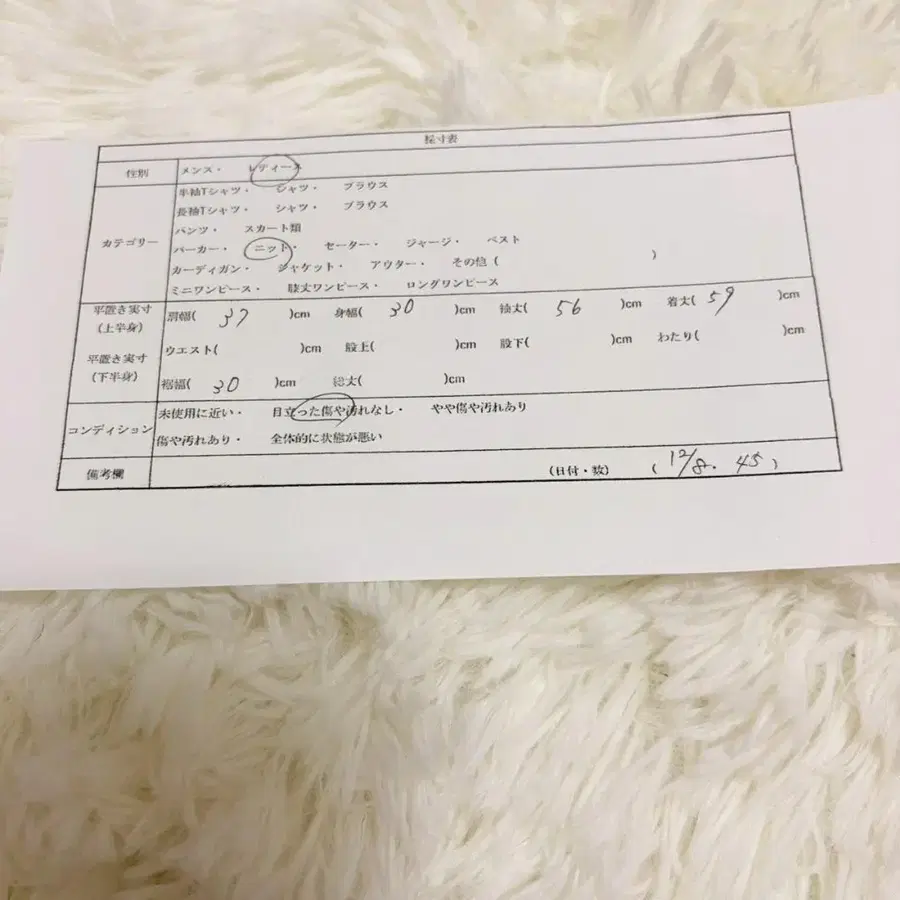 採寸表
性別 メンズ・ レディース
半袖Tシャツ・ シャツ・ ブラウス
長袖Tシャツ・ シャツ・ ブラウス
カテゴリー パンツ・ スカート類
パーカー・ ニット・ セーター・ ジャージ・ ベスト
カーディガン・ ジャケット・ アウター・ その他 ( )
ミニワンピース・ 膝丈ワンピース・ ロングワンピース
平置き実寸 (上半身) 肩幅( 37 )cm 身幅( 30 )cm 袖丈( 56 )cm 着丈( 59 )cm
平置き実寸 (下半身) ウエスト( )cm 股上( )cm 股下( )cm わたり( )cm
裾幅( 30 )cm 総丈( )cm
コンディション 未使用に近い・ 目立った傷や汚れなし・ やや傷や汚れあり
傷や汚れあり・ 全体的に状態が悪い
備考欄 (日付・数) ( 12/8. 45 )